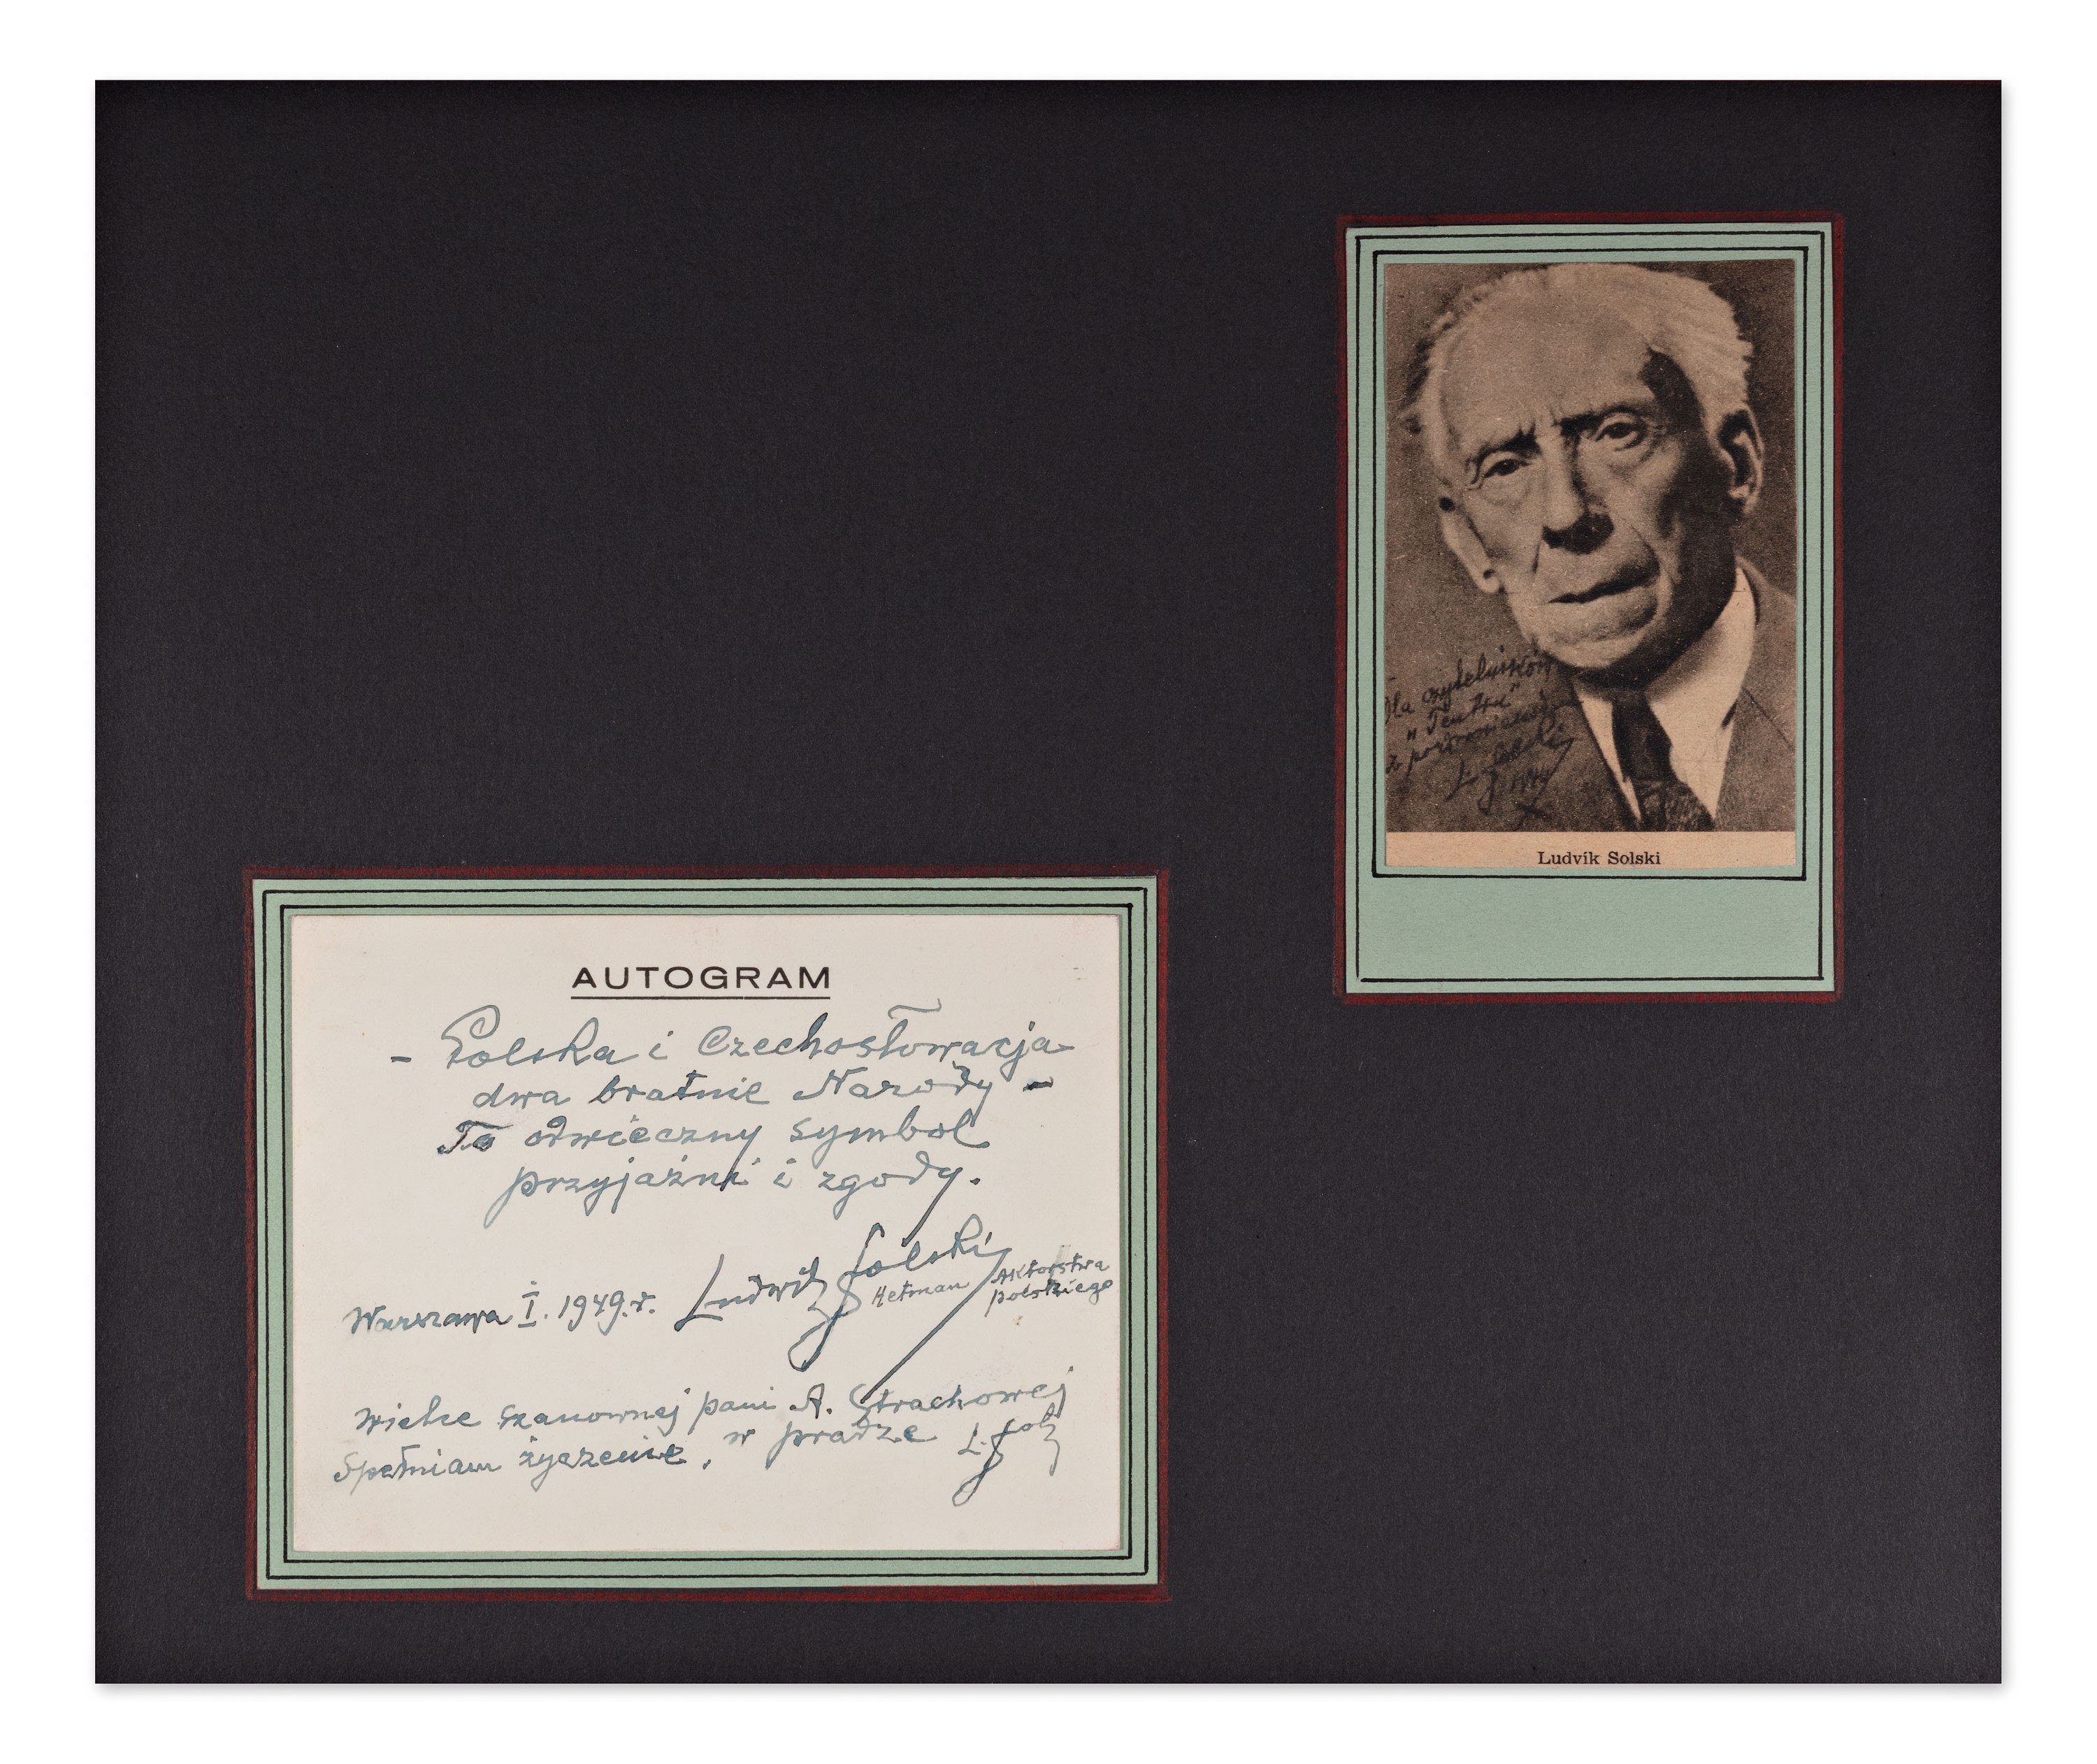 AUTOGRAM
- Polska i Czechosłowacja
dwa bratnie Narody -
To odwieczny symbol
przyjaźni i zgody.
Warszawa I. 1949. r. Ludwik Solski
Hetman Aktorstwa
polskiego
Wielce szanownej pani A. Strachowej
Spełniam życzenie, w pradze L. Sol
Dla czytelników
"Teatru"
z pozdrowieniem
L. Solski
Ludvík Solski